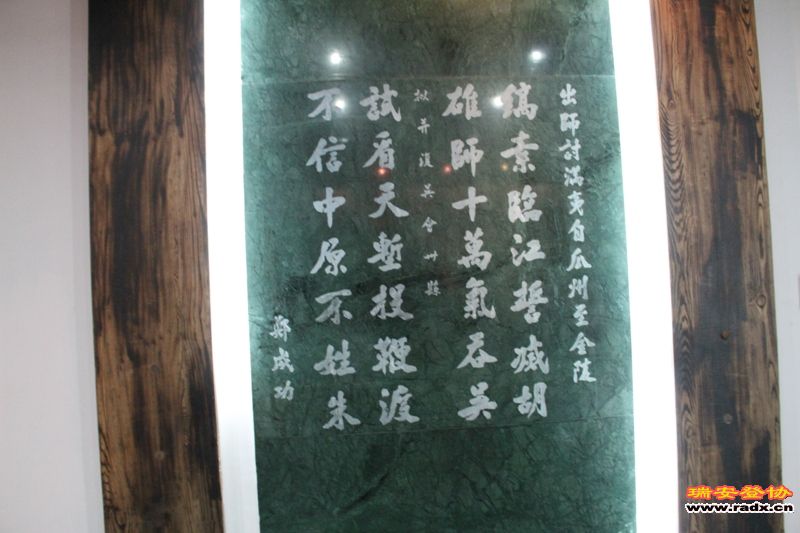 出師討滿夷自瓜州至金陵
縞素臨江誓滅胡
雄師十萬氣吞吳
并復吳會卅縣
試看天塹投鞭渡
不信中原不姓朱
鄭成功
瑞安登协
www.radx.cn